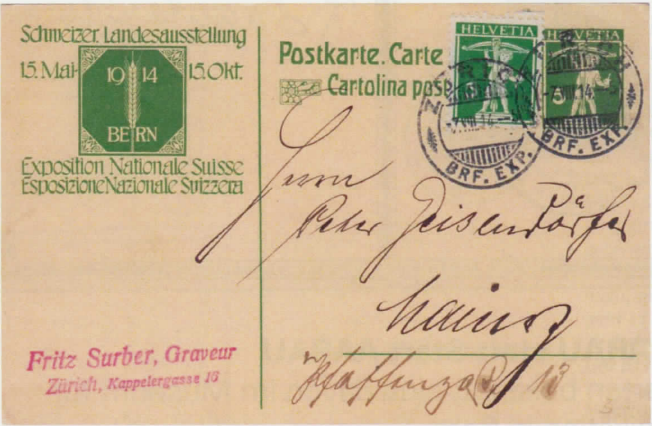 Schweizer. Landesausstellung
15. Mai- 1914 15. Okt.
BERN
Exposition Nationale Suisse
Esposizione Nazionale Svizzera
Postkarte. Carte
Cartolina pos
HELVETIA
HELVETIA
5
ZÜRICH
-7.VIII.14.
BRF. EXP.
ZÜRICH
-7.VIII.14.
BRF. EXP.
Herrn
Peter Geisendörfer
Mainz
Pfaffengasse 13
Fritz Surber, Graveur
Zürich, Kappelergasse 16